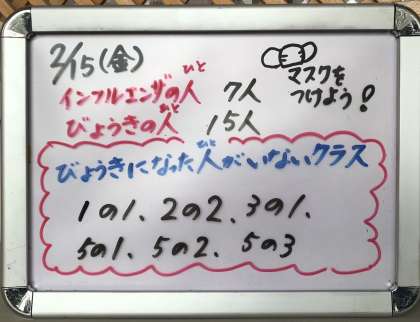 2/15(金)
インフルエンザの人 7人
びと
マスクを
つけよう!
びょうきの人 15人
びと
びょうきになった人がいないクラス
びと
1の1、2の2、3の1、
5の1、5の2、5の3